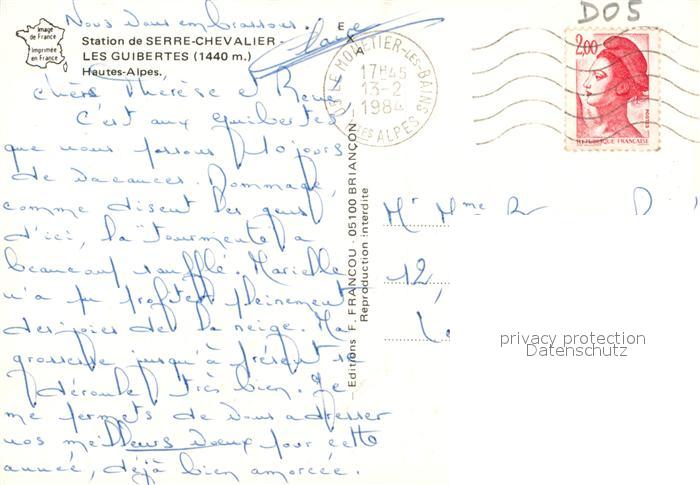 Nous vous embrassons.
Image
de France
Imprimée
en France
Station de SERRE-CHEVALIER -
LES GUIBERTES (1440 m.)
Hautes-Alpes.
Chers Thérèse et René
C'est aux Guibertes
que nous passons 10 jours
de vacances. Dommage,
comme disent les gens
d'ici, la "tourmente" a
beaucoup soufflé. Marielle
n'a pu profiter pleinement
des joies de la neige. Ma
grossesse jusqu'à présent se
déroule très bien. Je
me permets de vous adresser
vos meilleurs voeux pour cette
année, déjà bien amorcée.
Editions F. FRANCOU - 05100 BRIANÇON
Reproduction interdite
LE MONETIER-LES-BAINS
17H45
13-2
1984
LES ALPES
D05
2,00
REPUBLIQUE FRANCAISE
Mr Mme R D
12,
privacy protection
Datenschutz